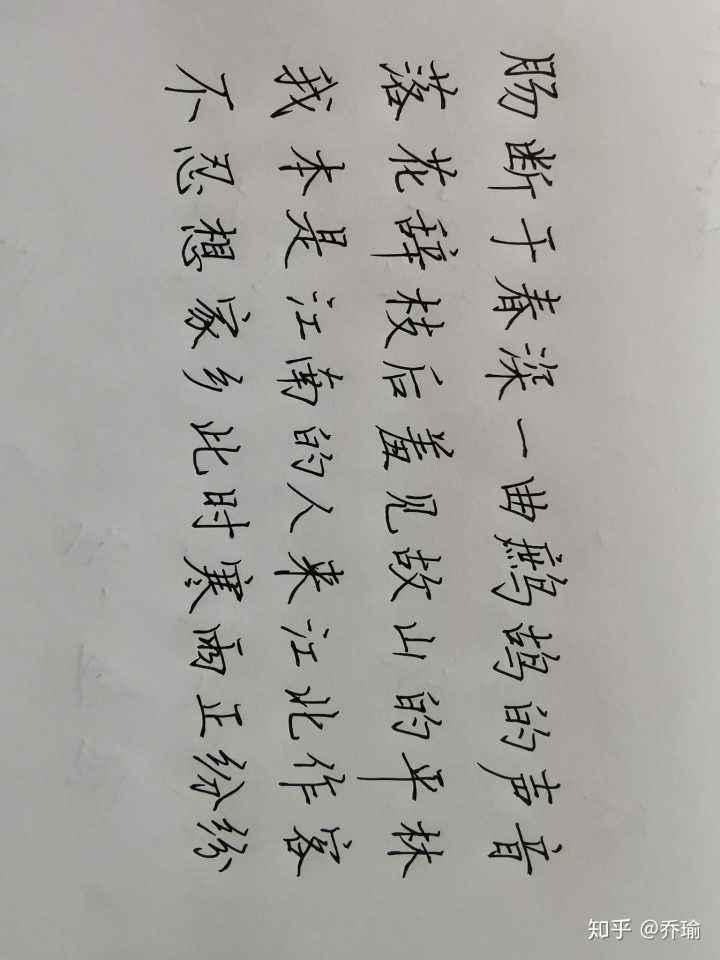 肠断于春深一曲鹧鸪的声音
落花辞枝后羞见故山的平林
我本是江南的人来江北作客
不忍想家乡此时寒雨正纷纷
知乎 @乔瑜